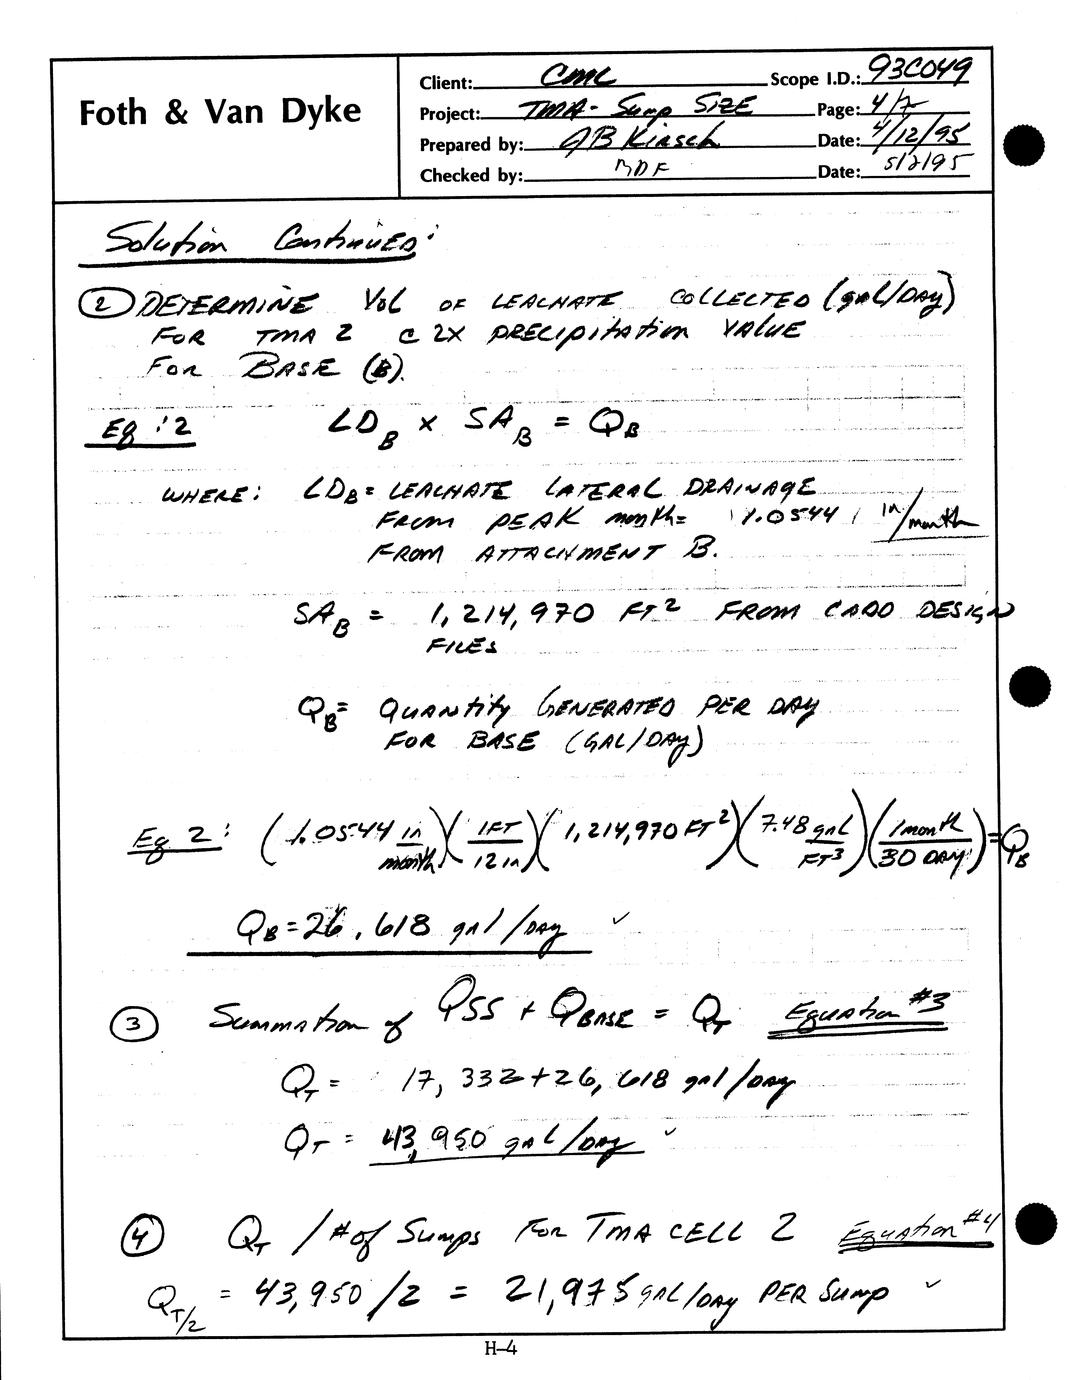 Foth & Van Dyke
Client: CMC Scope I.D.: 93C049
Project: TMA - Sump SIZE Page: 4/7
Prepared by: JB Kirsch Date: 4/12/95
Checked by: BDF Date: 5/2/95
Solution Continued:
② DETERMINE Vol OF LEACHATE COLLECTED (gal/DAY)
FOR TMA 2 @ 2X PRECIPITATION VALUE
FOR BASE (B).
Eq : 2 LD_B x SA_B = Q_B
WHERE: LD_B = LEACHATE LATERAL DRAINAGE
FROM PEAK month = 1.0544 in/month
FROM ATTACHMENT B.
SA_B = 1,214,970 FT² FROM CADD DESIGN
FILES
Q_B = QUANTITY GENERATED PER DAY
FOR BASE (GAL/DAY)
Eq 2: (1.0544 in/month)(1FT/12 in)(1,214,970 FT²)(7.48 gal/FT³)(1 month/30 DAY) = Q_B
Q_B = 26,618 gal/DAY ✓
③ Summation of QSS + Q_BASE = Q_T Equation #3
Q_T = 17,332 + 26,618 gal/DAY
Q_T = 43,950 gal/DAY ✓
④ Q_T / # of Sumps FOR TMA CELL 2 Equation #4
Q_T/2 = 43,950 / 2 = 21,975 GAL/DAY PER Sump ✓
H-4